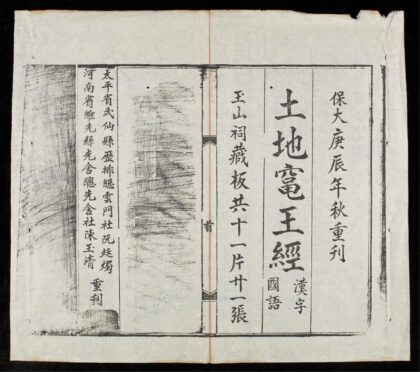 保大庚辰年秋重刊
土地竈王經
漢字
國語
玉山祠藏板共十一片廿一張
太平省武仙縣歷排總雲門社阮廷燭
河南省維先縣先舍總先舍社陳玉清
重刊